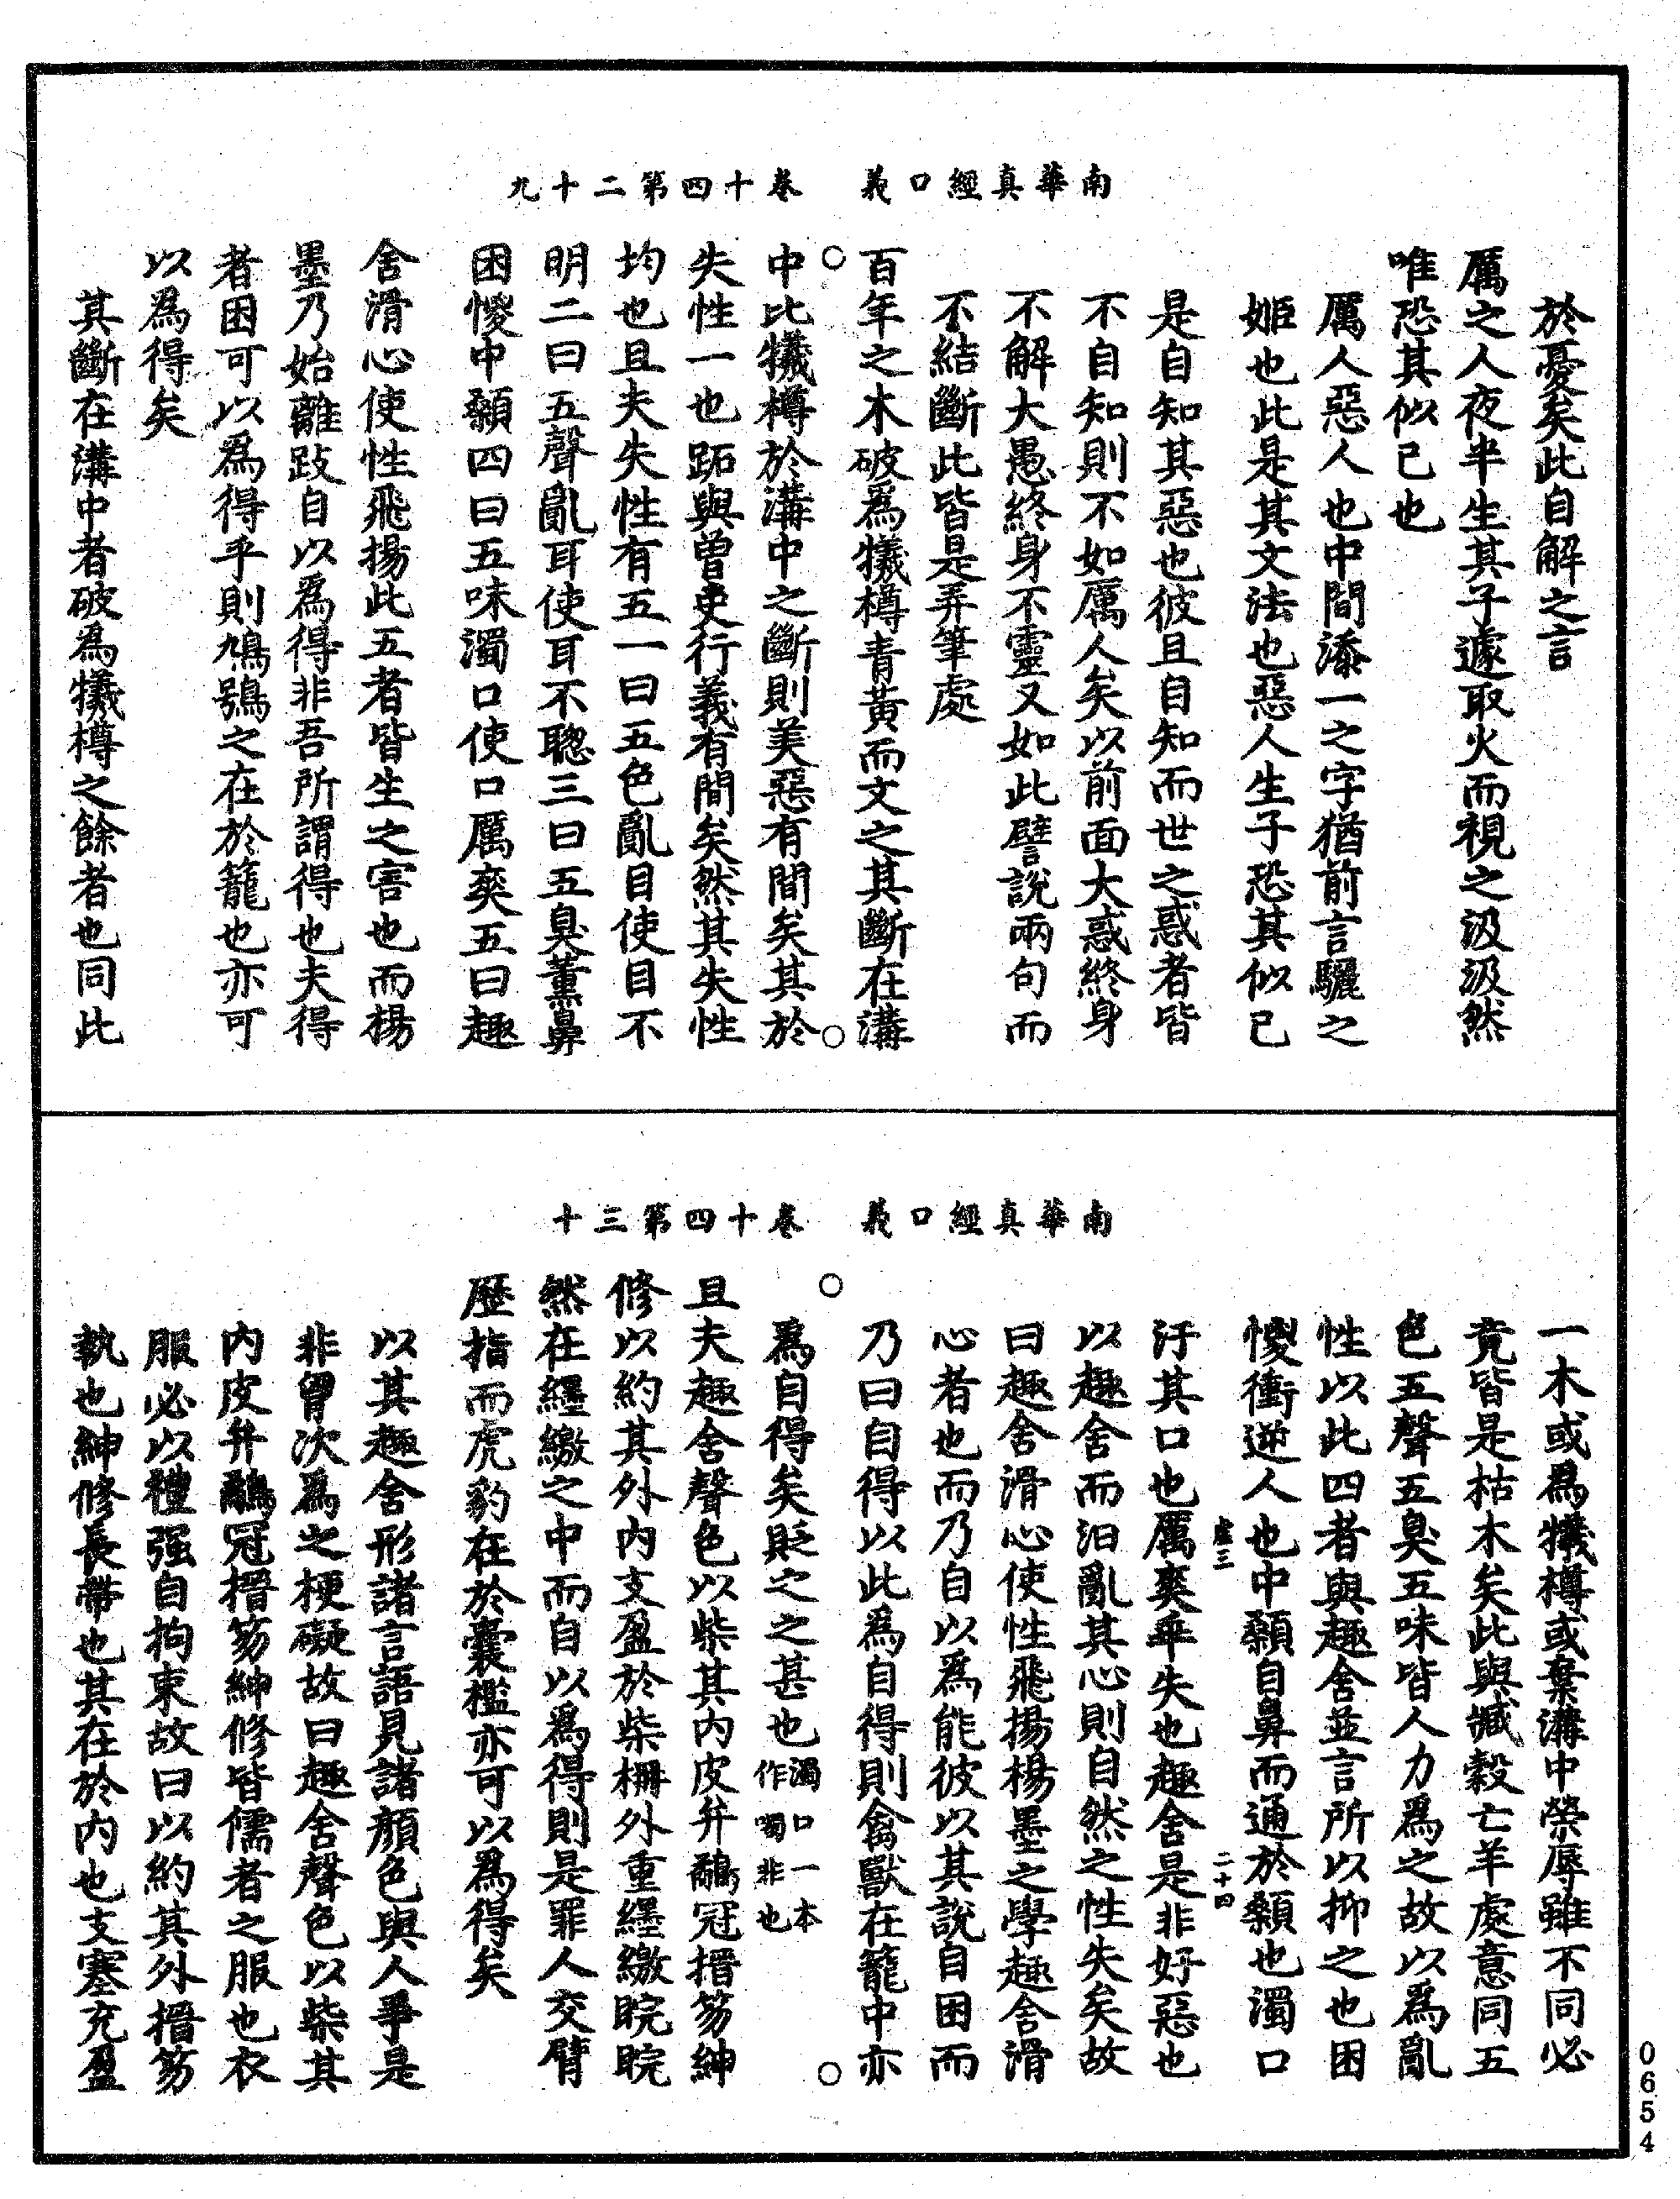 南華真經口義　卷十四第二十九
於憂矣此自解之言
厲之人夜半生其子遽取火而視之汲汲然
唯恐其似己也
厲人惡人也中間添一之字猶前言驪之
姬也此是其文法也惡人生子恐其似己
是自知其惡也彼且自知而世之惑者皆
不自知則不如厲人矣以前面大惑終身
不解大愚終身不靈又如此譬說兩句而
不結斷此皆是弄筆處
百年之木破爲犧樽青黃而文之其斷在溝
中比犧樽於溝中之斷則美惡有間矣其於
失性一也跖與曾史行義有間矣然其失性
均也且夫失性有五一曰五色亂目使目不
明二曰五聲亂耳使耳不聰三曰五臭薰鼻
困惾中顙四曰五味濁口使口厲爽五曰趣
舍滑心使性飛揚此五者皆生之害也而楊
墨乃始離跂自以爲得非吾所謂得也夫得
者困可以爲得乎則鳩鴞之在於籠也亦可
以爲得矣
其斷在溝中者破爲犧樽之餘者也同此
南華真經口義　卷十四第三十
一木或爲犧樽或棄溝中榮辱雖不同必
竟皆是枯木矣此與臧穀亡羊處意同五
色五聲五臭五味皆人力爲之故以爲亂
性以此四者與趣舍並言所以抑之也困
惾衝逆人也中顙自鼻而通於顙也濁口
虛三　二十四
汙其口也厲爽乖失也趣舍是非好惡也
以趣舍而汩亂其心則自然之性失矣故
曰趣舍滑心使性飛揚楊墨之學趣舍滑
心者也而乃自以爲能彼以其說自困而
乃曰自得以此爲自得則禽獸在籠中亦
爲自得矣貶之之甚也濁口一本作噣非也
且夫趣舍聲色以柴其內皮弁鷸冠搢笏紳
修以約其外內支盈於柴柵外重纆繳睆睆
然在纆繳之中而自以爲得則是罪人交臂
歷指而虎豹在於囊檻亦可以爲得矣
以其趣舍形諸言語見諸顏色與人爭是
非胷次爲之梗礙故曰趣舍聲色以柴其
內皮弁鷸冠搢笏紳修皆儒者之服也衣
服必以禮强自拘束故曰以約其外搢笏
執也紳修長帶也其在於內也支塞充盈
0654